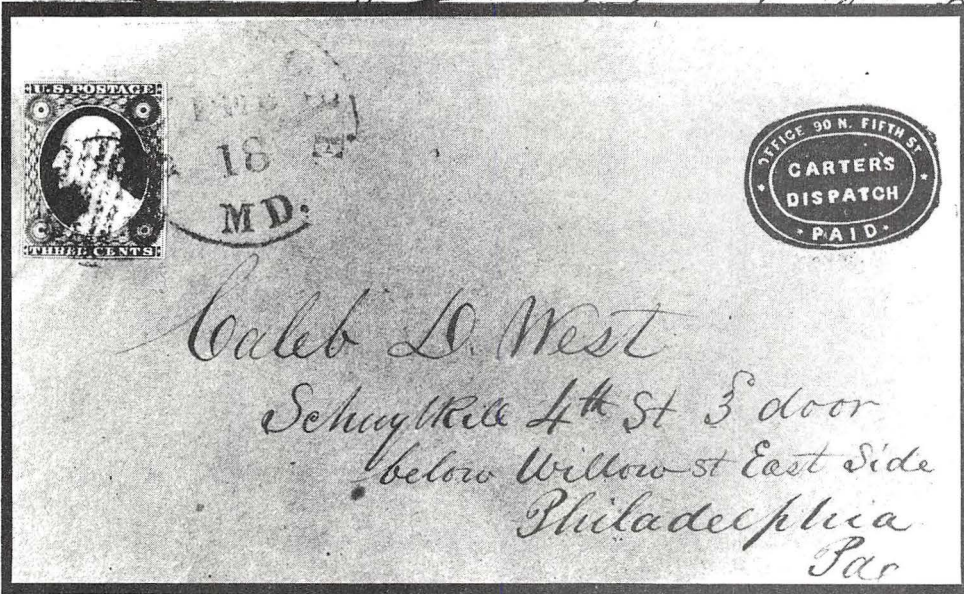 U.S. POSTAGE
THREE CENTS
18
MD.
OFFICE 90 N. FIFTH ST
CARTER'S
DISPATCH
PAID
Caleb D. West
Schuylkill 4th St 3 door
below Willow st East Side
Philadelphia
Pa